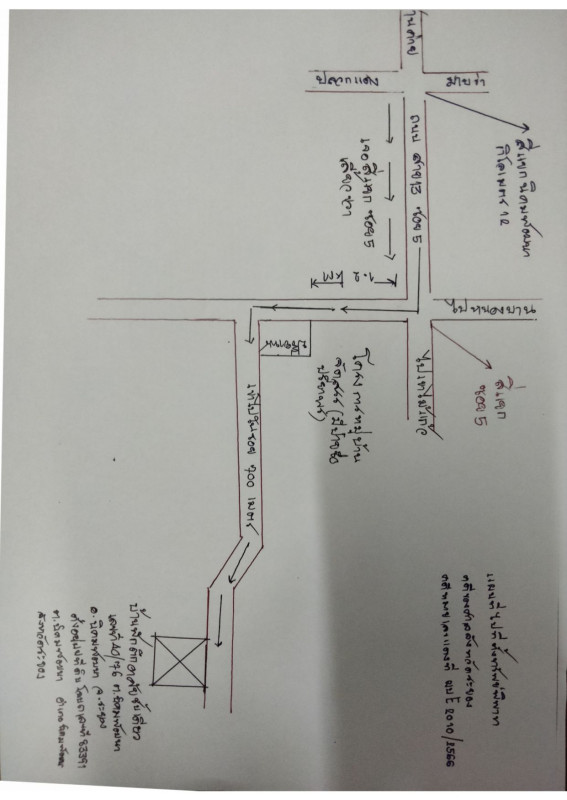 แผนที่ไปที่ตั้งทรัพย์พิพาท
คดีของศาลจังหวัดระยอง
คดีหมายเลขแดงที่ ผบE 2010/2566
สี่แยกนิคมพัฒนา
กิโลเมตร 12
มาบข่า
ถนน สาย 13 ซอย 5
เจอสี่แยก ซอย 5
เลี้ยวขวา
1.2
กม
สี่แยก
ซอย 5
ป้อม
โครงการหมู่บ้าน
จัดสรร (มีป้าย
เข้าไปในซอย 700 เมตร
บ้านพักตึกอาศัยชั้นเดียว
เลขที่ 40/76 ต.นิคมพัฒนา
อ.นิคมพัฒนา จ.ระยอง
ตั้งอยู่บนที่ดิน โฉนดเลขที่ 83391
ต.นิคมพัฒนา อำเภอนิคมพัฒนา
จังหวัดระยอง